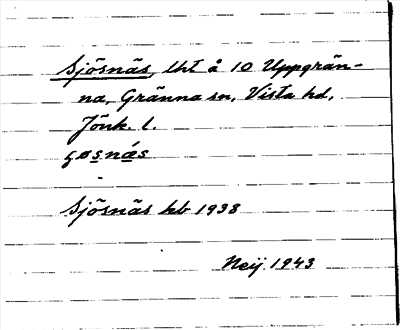 Sjösnäs, lht å 10 Uppgrän-
na, Gränna sn, Vista hd,
Jönk. l.
Sjösnäs hb 1938
Neij. 1943